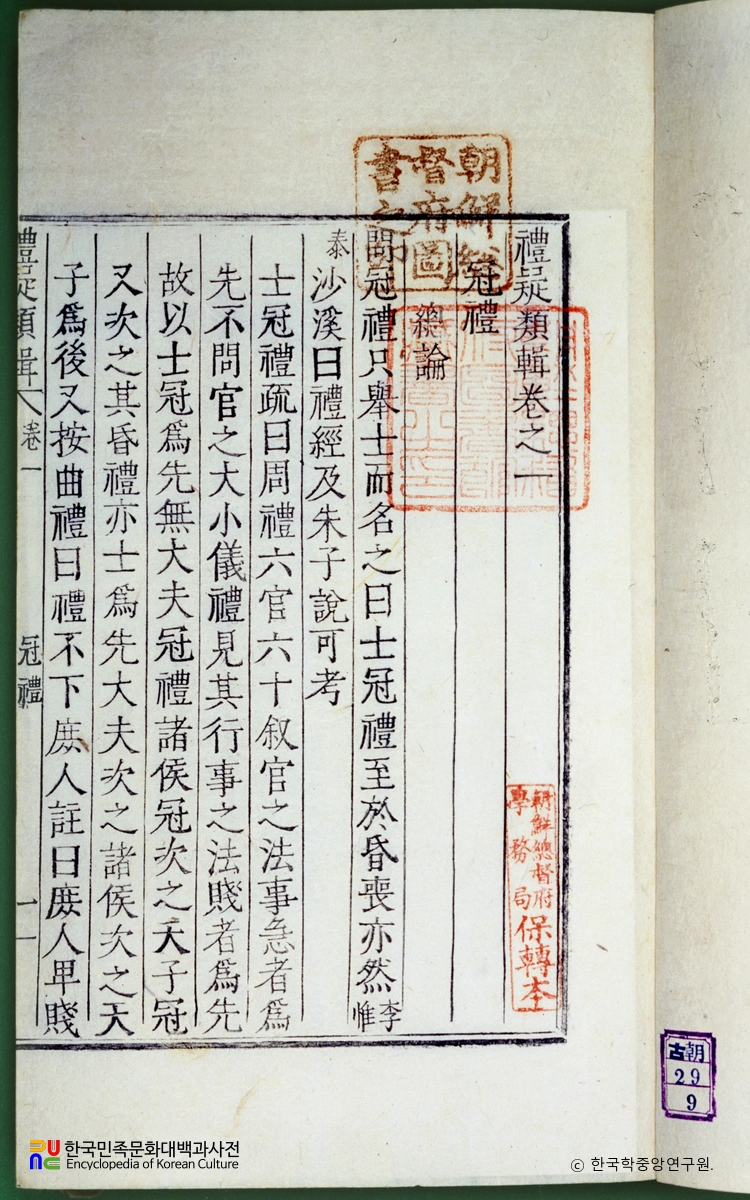 禮疑類輯卷之一
冠禮
總論
問冠禮只舉士而名之曰士冠禮至於昏喪亦然李惟
泰沙溪曰禮經及朱子說可考
士冠禮疏曰周禮六官六十叙官之法事急者爲
先不問官之大小儀禮見其行事之法賤者爲先
故以士冠爲先無大夫冠禮諸侯冠次之天子冠
又次之其昏禮亦士爲先大夫次之諸侯次之天
子爲後又按曲禮曰禮不下庶人註曰庶人卑賤
禮疑類輯 卷一 冠禮 一
朝鮮總督府圖書之印
朝鮮總督府
學務局
保轉本
古朝
29
9
한국민족문화대백과사전
Encyclopedia of Korean Culture
ⓒ 한국학중앙연구원.